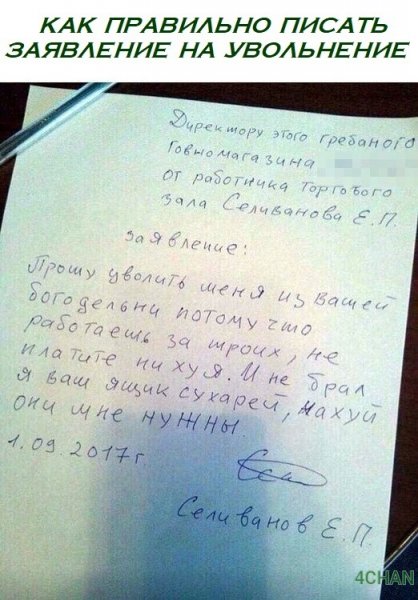 КАК ПРАВИЛЬНО ПИСАТЬ
ЗАЯВЛЕНИЕ НА УВОЛЬНЕНИЕ
Директору этого гребаного
Говномагазина
от работника торгового
зала Селиванова Е.П.
заявление:
Прошу уволить меня из вашей
богодельни потому что
работаешь за троих, не
платите ни хуя. И не брал
я ваш ящик сухарей, нахуй
они мне нужны.
1.09.2017г
Селиванов Е.П.
4CHAN